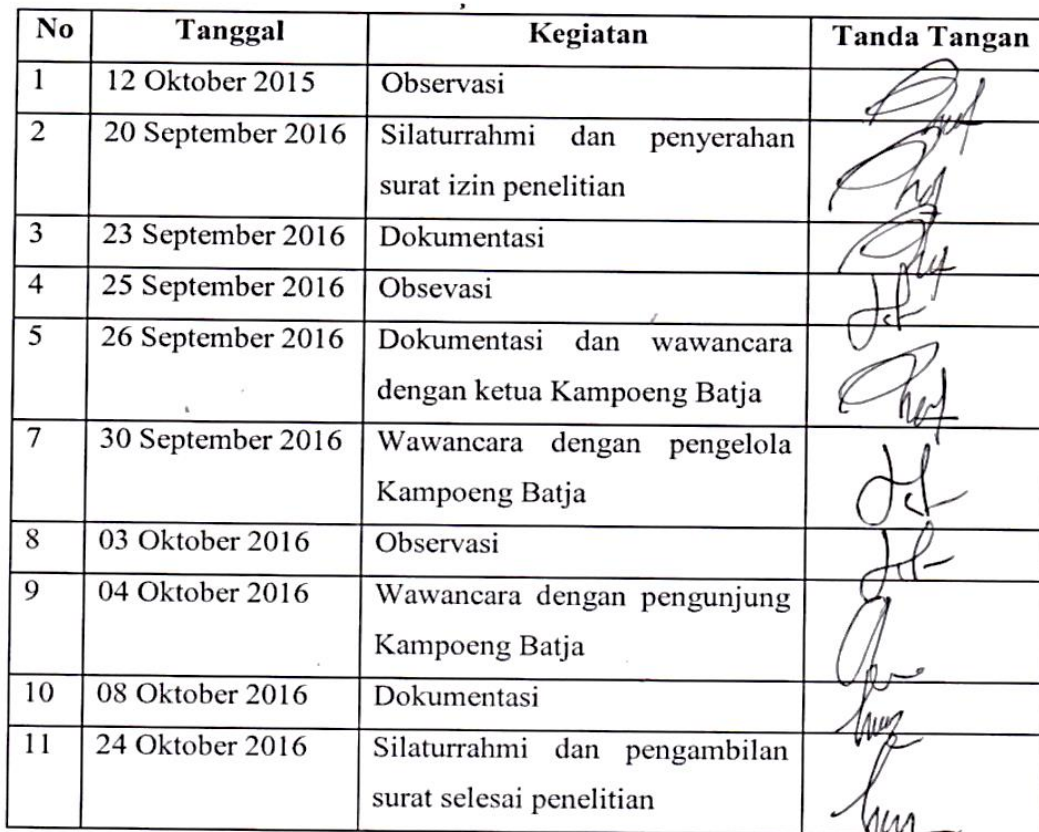 No Tanggal Kegiatan Tanda Tangan
1 12 Oktober 2015 Observasi
2 20 September 2016 Silaturrahmi dan penyerahan
surat izin penelitian
3 23 September 2016 Dokumentasi
4 25 September 2016 Obsevasi
5 26 September 2016 Dokumentasi dan wawancara
dengan ketua Kampoeng Batja
7 30 September 2016 Wawancara dengan pengelola
Kampoeng Batja
8 03 Oktober 2016 Observasi
9 04 Oktober 2016 Wawancara dengan pengunjung
Kampoeng Batja
10 08 Oktober 2016 Dokumentasi
11 24 Oktober 2016 Silaturrahmi dan pengambilan
surat selesai penelitian